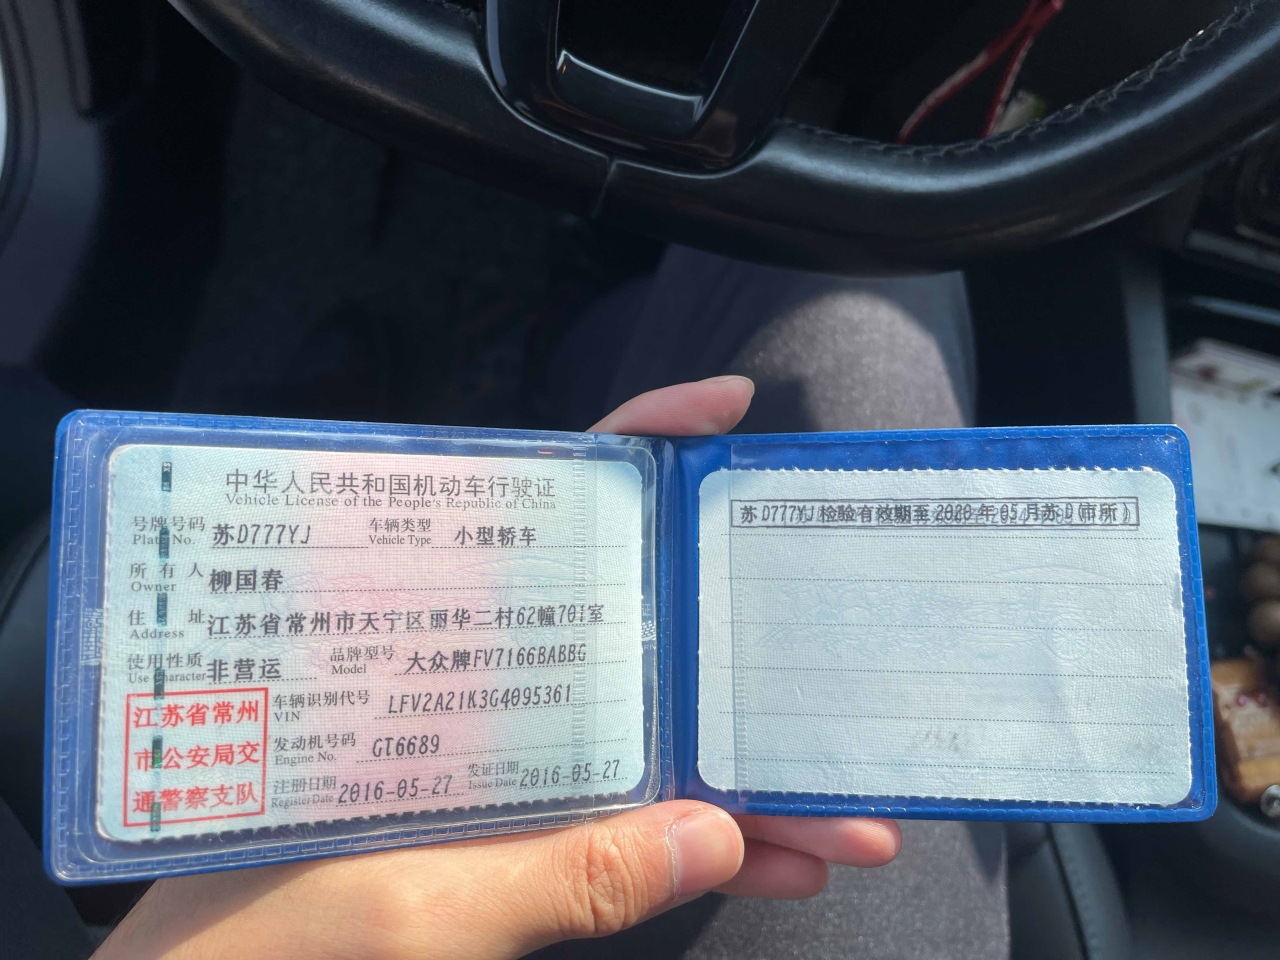 中华人民共和国机动车行驶证
Vehicle License of the People's Republic of China
号牌号码 苏D777YJ 车辆类型 小型轿车
Plate No. Vehicle Type
所有人 柳国春
Owner
住址 江苏省常州市天宁区丽华二村62幢701室
Address
使用性质 非营运 品牌型号 大众牌FV7166BABBG
Use Character Model
江苏省常州
市公安局交
通警察支队
车辆识别代号 LFV2A21K3G4095361
VIN
发动机号码 GT6689
Engine No.
注册日期 2016-05-27 发证日期 2016-05-27
Register Date Issue Date
苏D777YJ 检验有效期至 年05月苏D(市所)